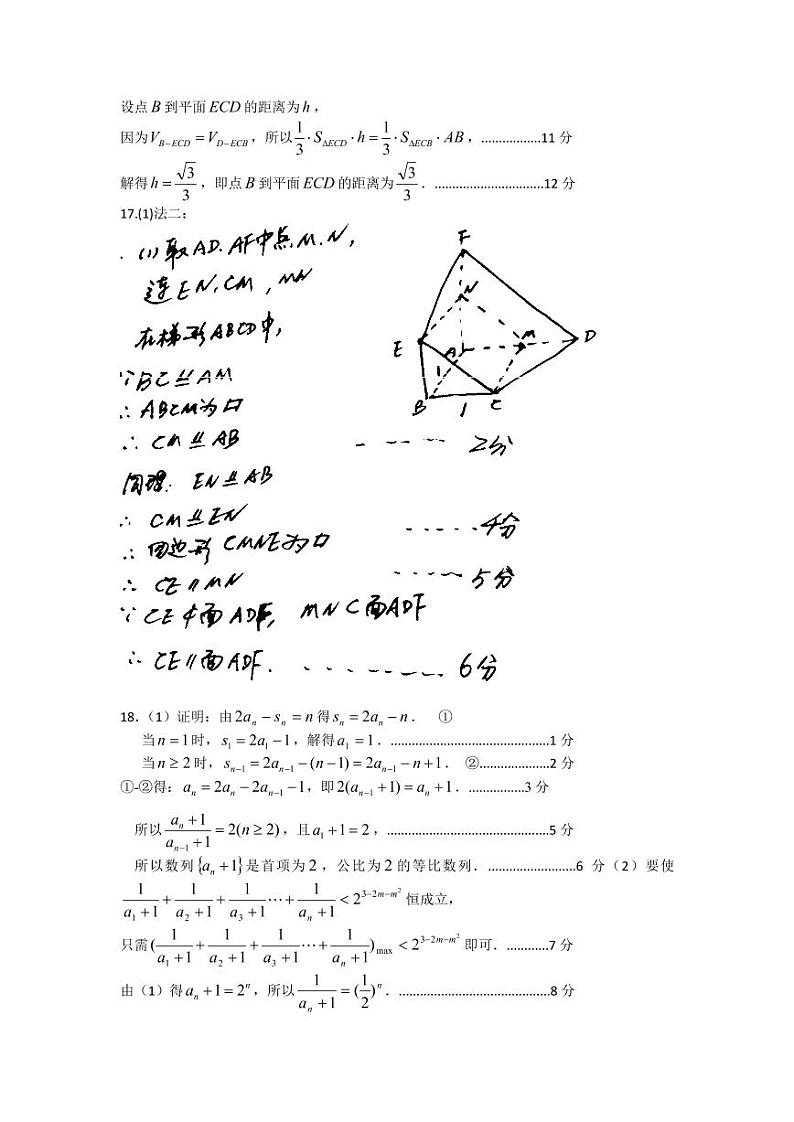 设点 B 到平面 ECD 的距离为 h，
因为 V_{B-ECD} = V_{D-ECB}，所以 \frac{1}{3}·S_{ΔECD}·h = \frac{1}{3}·S_{ΔECB}·AB，.................11 分
解得 h = \frac{\sqrt{3}}{3}，即点 B 到平面 ECD 的距离为 \frac{\sqrt{3}}{3}．...............................12 分
17.(1)法二：
(1) 取AD. AF中点M. N,
连EN, CM, MN
在梯形ABCD中,
∵BC⫽AM
∴ABCM为▱
∴ CM⫽AB ---- 2分
同理: EN⫽AB
∴ CM⫽EN ----- 4分
∴ 四边形CMNE为▱
∴ CE∥MN ----- 5分
∵CE⊄面ADF, MN⊂面ADF
∴CE∥面ADF. ------- 6分
F
N
E
A
M
D
1
B
1
C
18．（1）证明：由 2a_n - s_n = n 得 s_n = 2a_n - n． ①
当 n = 1 时，s_1 = 2a_1 - 1，解得 a_1 = 1．.............................................1 分
当 n ≥ 2 时，s_{n-1} = 2a_{n-1} - (n-1) = 2a_{n-1} - n + 1． ②....................2 分
①-②得：a_n = 2a_n - 2a_{n-1} - 1，即 2(a_{n-1} + 1) = a_n + 1．................3 分
所以 \frac{a_n + 1}{a_{n-1} + 1} = 2(n ≥ 2)，且 a_1 + 1 = 2，..............................................5 分
所以数列 {a_n + 1} 是首项为 2，公比为 2 的等比数列．.........................6 分（2）要使
\frac{1}{a_1 + 1} + \frac{1}{a_2 + 1} + \frac{1}{a_3 + 1} ··· + \frac{1}{a_n + 1} < 2^{3-2m-m^2} 恒成立，
只需 (\frac{1}{a_1 + 1} + \frac{1}{a_2 + 1} + \frac{1}{a_3 + 1} ··· + \frac{1}{a_n + 1})_{max} < 2^{3-2m-m^2} 即可．............7 分
由（1）得 a_n + 1 = 2^n，所以 \frac{1}{a_n + 1} = (\frac{1}{2})^n．...........................................8 分